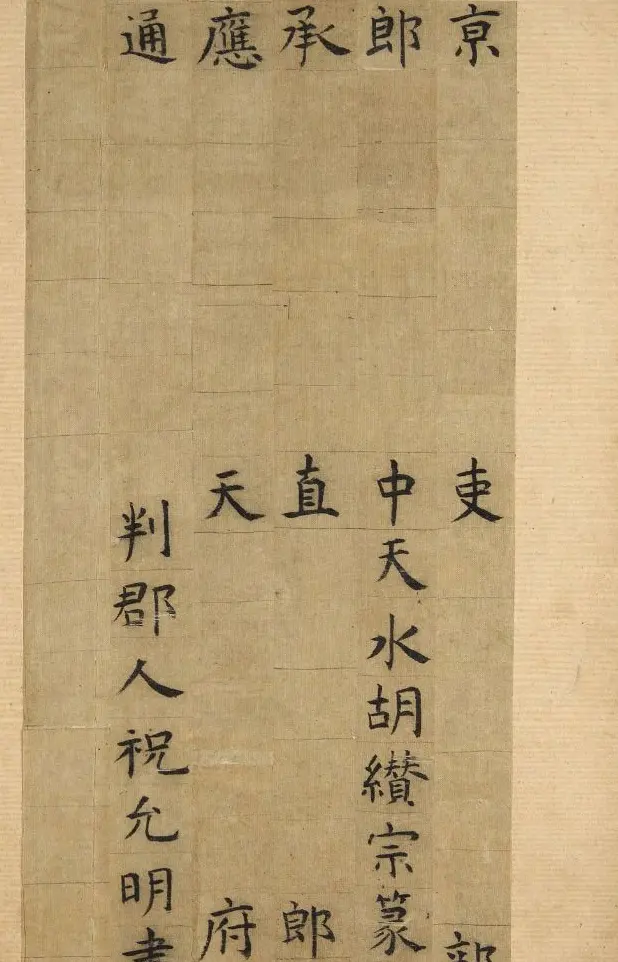 亰吏部
郎中天水胡纘宗篆
承直郎
應天府
通判郡人祝允明書